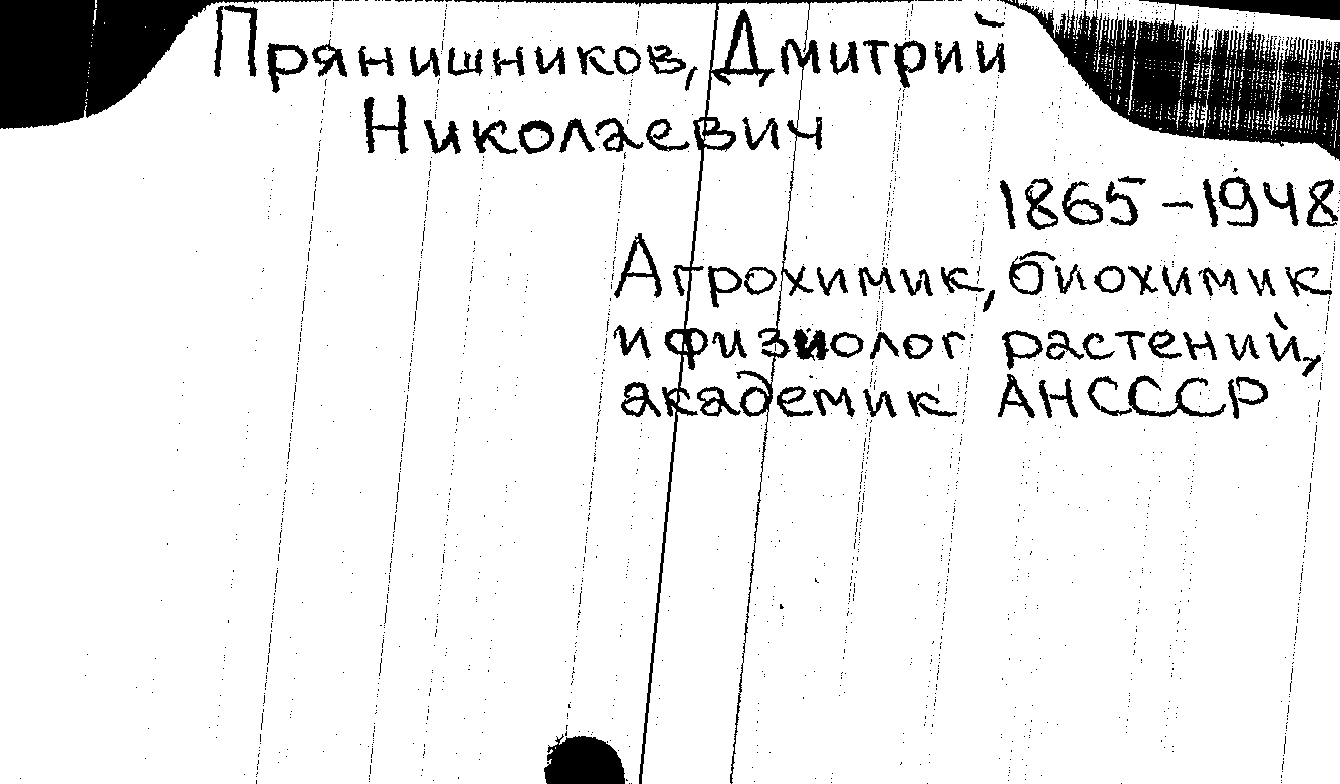 Прянишников, Дмитрий
Николаевич
1865-1948
Агрохимик, биохимик
и физиолог растений,
академик АНСССР